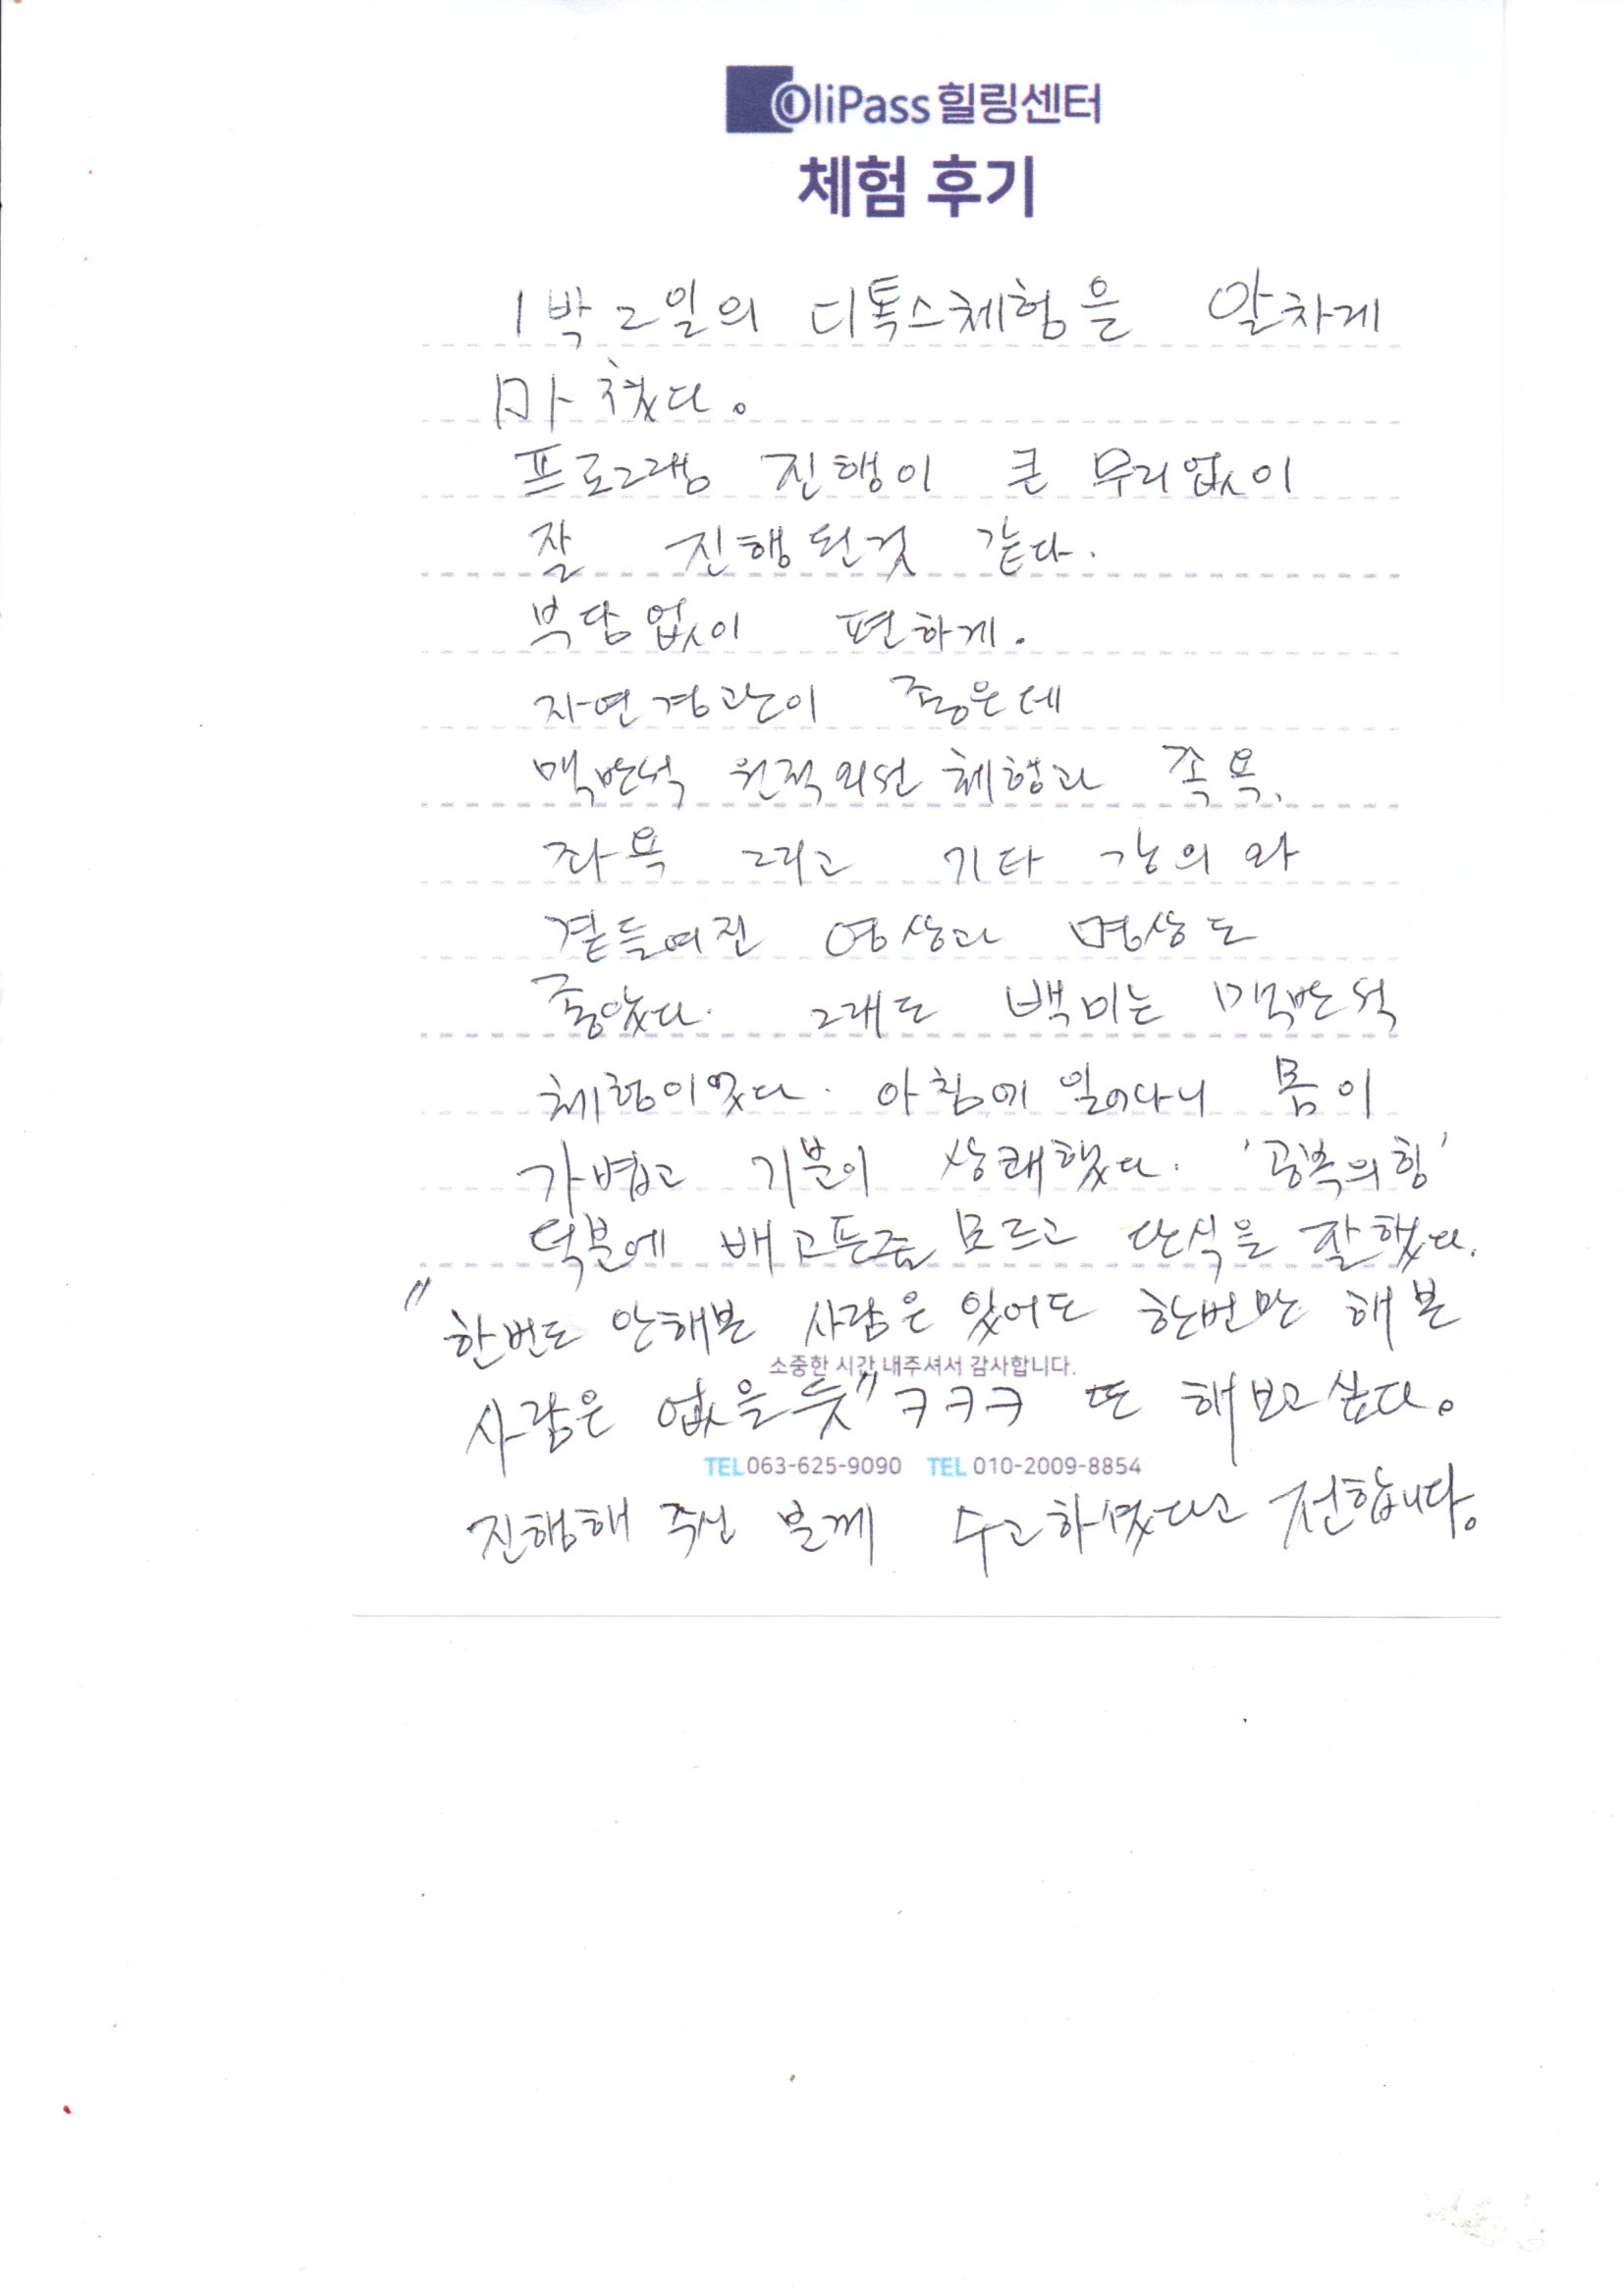 OliPass 힐링센터
체험 후기
1박 2일의 디톡스체험을 알차게
마쳤다.
프로그램 진행이 큰 무리없이
잘 진행된것 같다.
부담없이 편하게.
자연경관이 좋은데
맥반석 원적외선 체험과 족욕,
좌욕 그리고 기타 강의와
곁들여진 영상과 명상도
좋았다. 그래도 백미는 맥반석
체험이었다. 아침에 일어나니 몸이
가볍고 기분이 상쾌했다. '공복의힘'
덕분에 배고픈줄 모르고 단식을 잘했다.
"한번도 안해본 사람은 있어도 한번만 해본
소중한 시간 내주셔서 감사합니다.
사람은 없을듯" ㅋㅋㅋ 또 해보고싶다.
TEL 063-625-9090 TEL 010-2009-8854
진행해 주신 분께 수고하셨다고 전합니다.